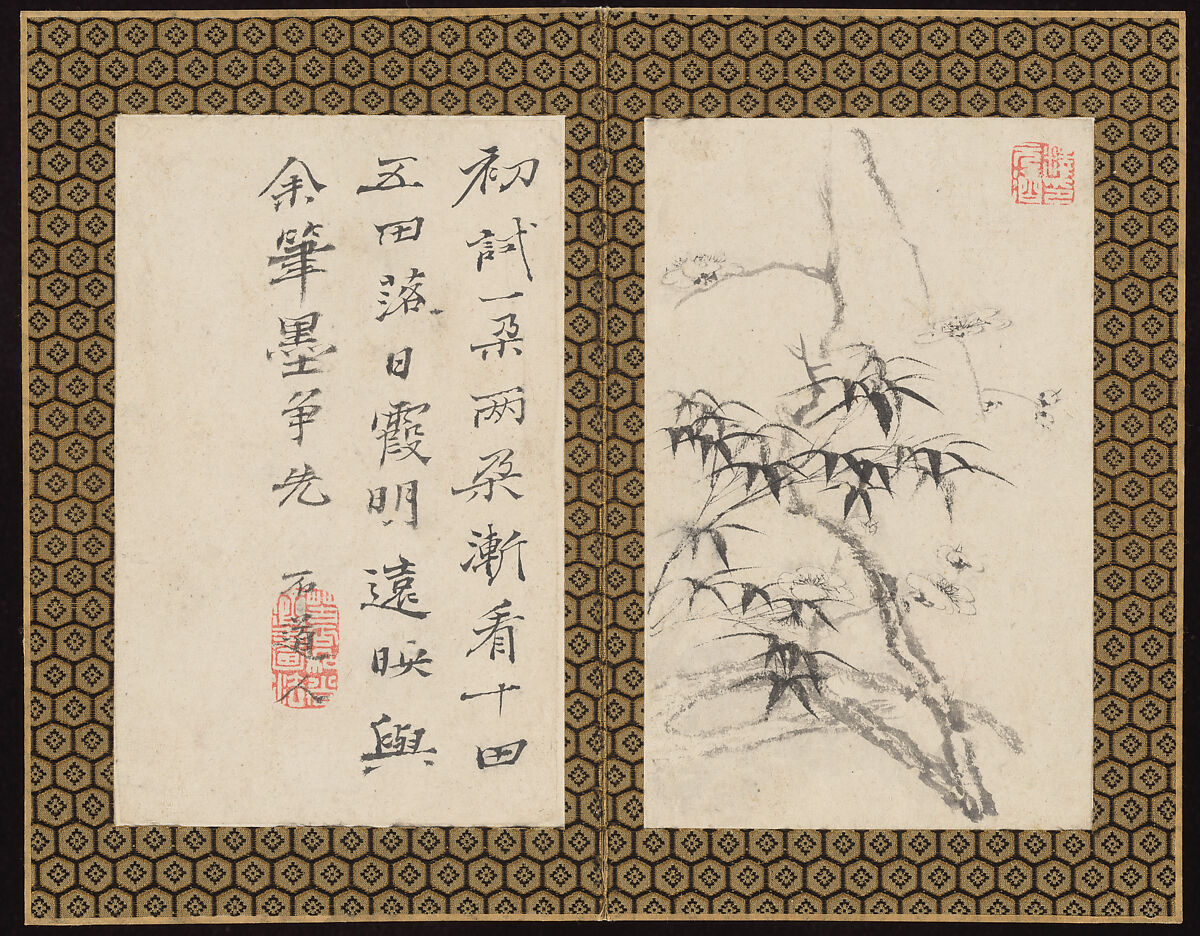 初試一朶兩朶漸看十田
五田落日霞明遠映與
余筆墨爭先
石道人